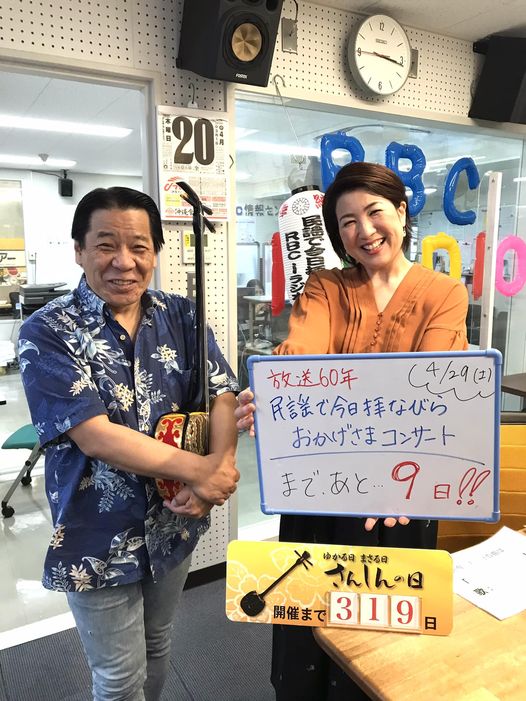 FOSTEX
SEIKO
4月
木曜日
20
RBC
民謡で今日拝
RBCiラジオ
放送60年
(4/29(土))
民謡で今日拝ながら
おかげさまコンサート
まで、あと…9日!!
ゆかる日 まさる日
さんしんの日
開催まで319日